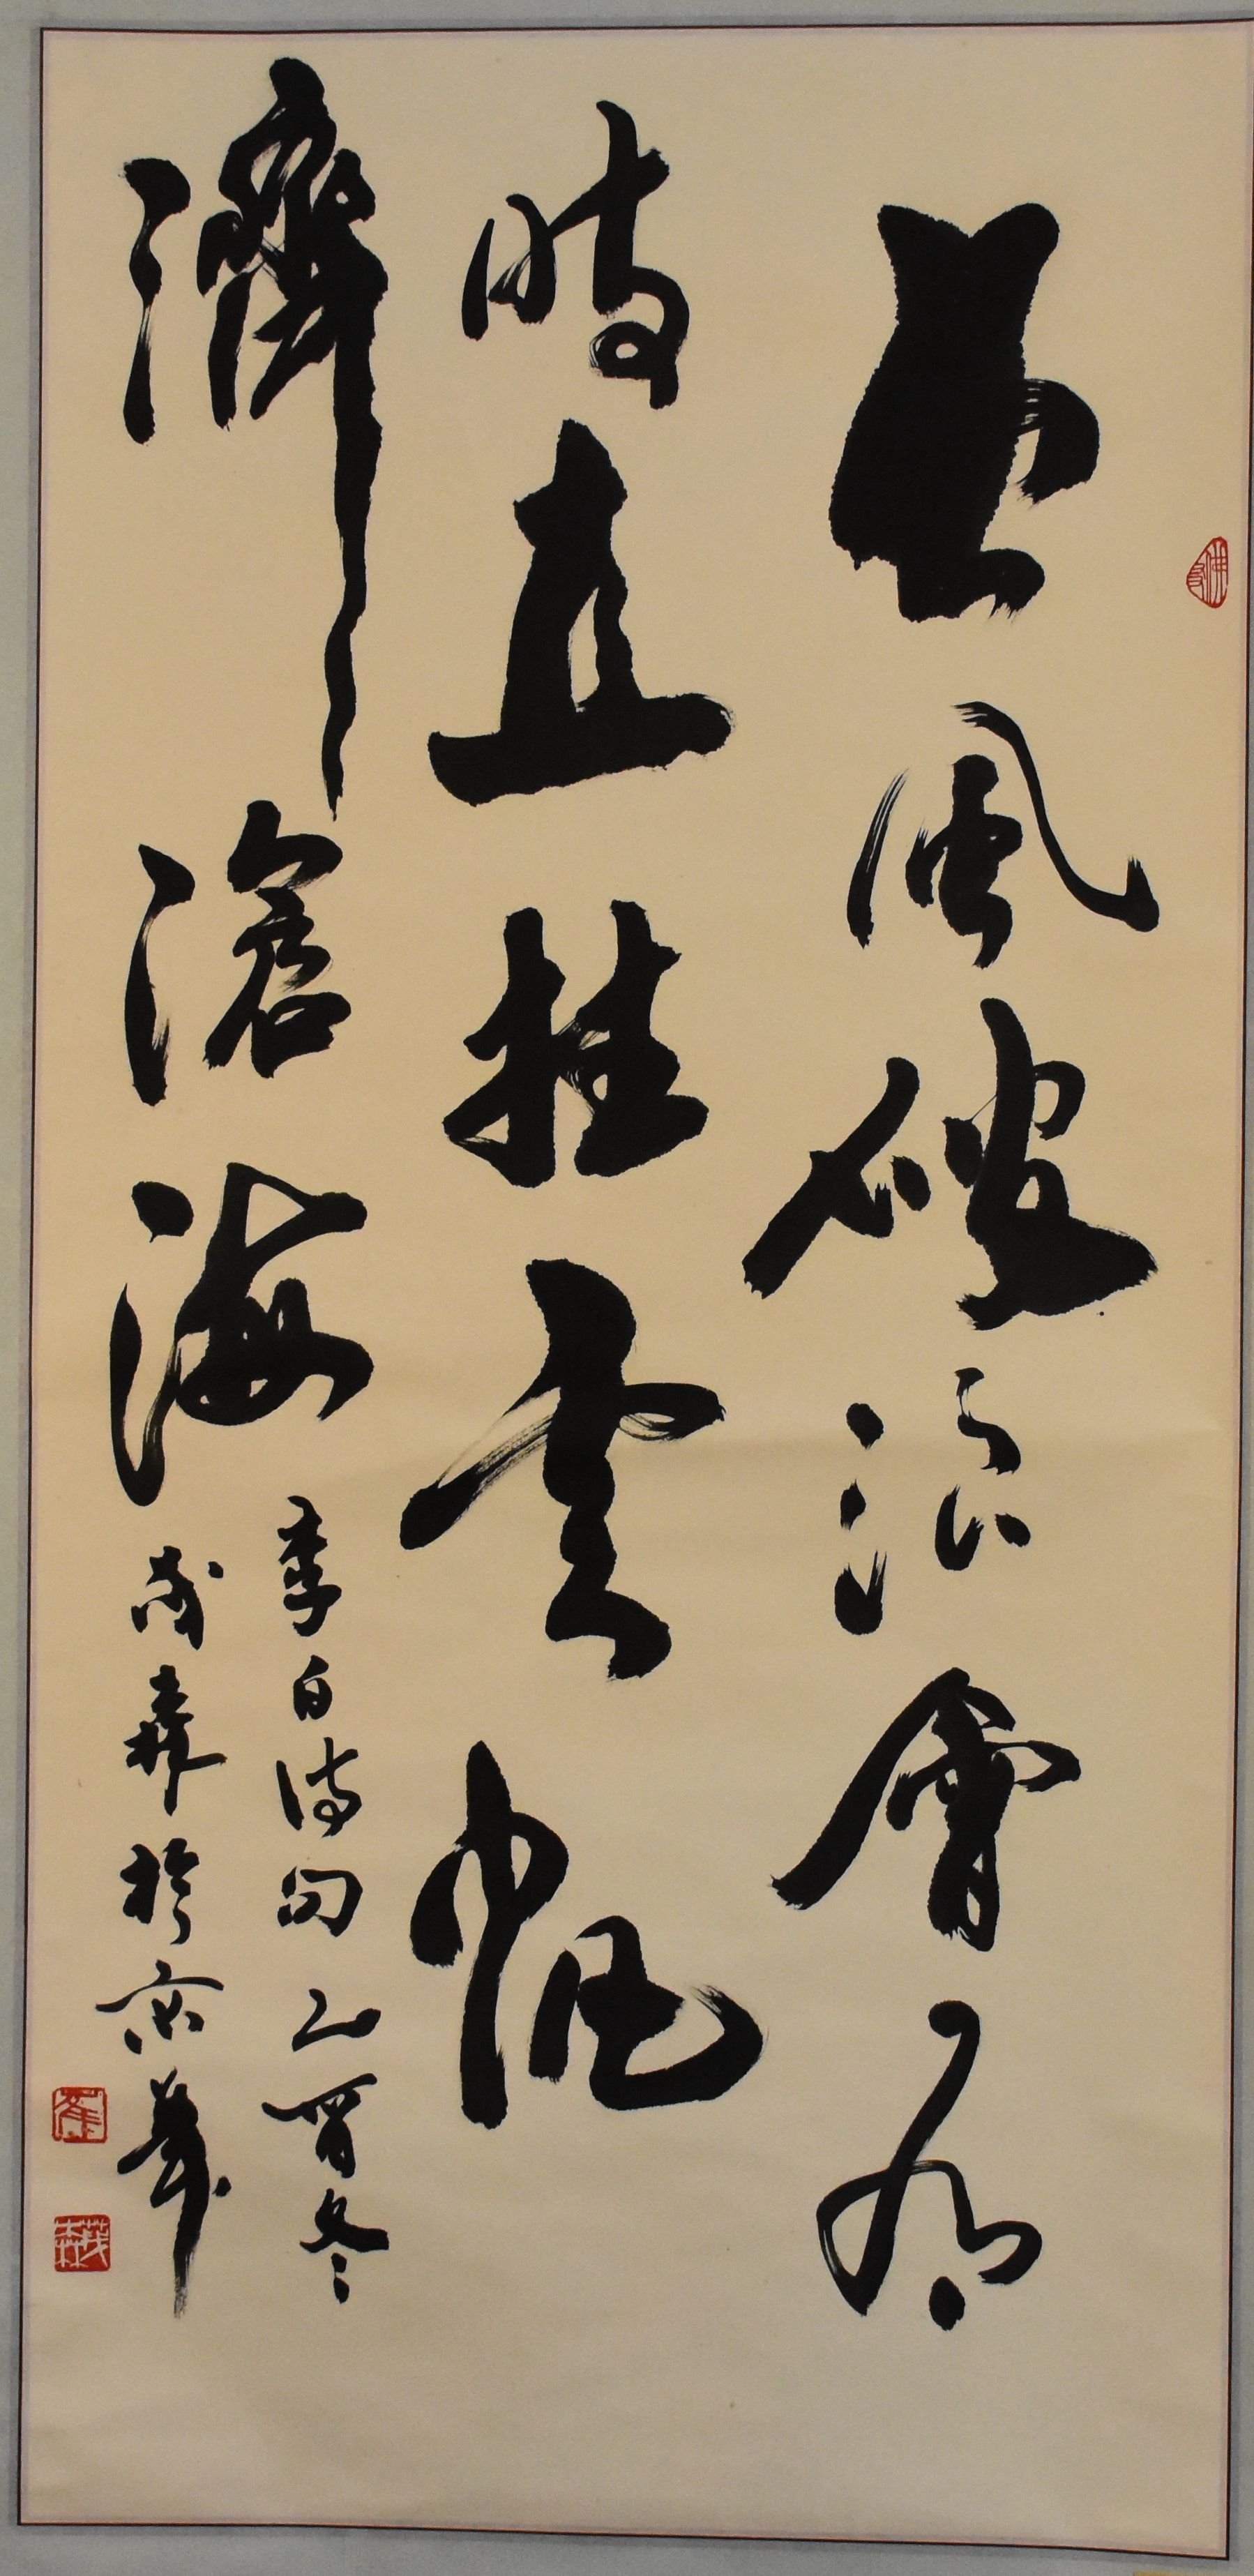 長風破浪會有
時直挂雲帆
濟滄海
李白詩句乙酉冬
茂森於京華
崔
茂森